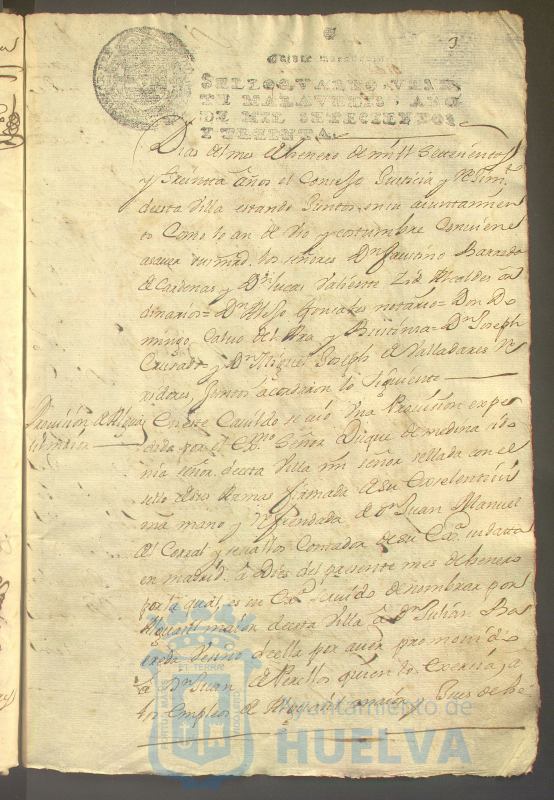 3
SELLO QVARTO, VEIN
TE MARAVEDIS, AÑO
DE MIL SETECIENTOS
Y TREINTA.
Dias del mes de henero de mill Setecientos
y treinta años el Conceso Justicia y Regim.to
desta Villa estando Juntos en su aiuntamien
to Como lo an de Uso y costumbre Conviene
asaver sus mrds. los señores Dn Faustino Barreda
de Cardenas y Dn Lucas Valiente Alcaldes or
dinarios= Dn Alonso Gonsales notario= Don Do
mingo Calvo del y = Dn Joseph
y Dn Miguel Joseph de Valladares Re
xidores, Juntos acordaron lo siguiente
Provision de Alguasil maior
En este Cavildo se vio Una Provision expe
dida por el Exmo Señor Duque de medina sido
nia señor desta Villa mi señor sellada con el
sello de sus Armas firmada de su Exselentisi
ma mano y refrendada de Dn Juan Manuel
del Corral y Contador de su Exa. su datta
en madrid a dies del presente mes de henero
por la qual es su Exa. servido de nombrar por
Alguasil maior desta Villa à Dn Julian Ba
rreda Vesino de ella por aver promovido
à Dn Juan de quien lo exercia, a
los empleos de Alguasil maior Pues de he
Ayuntamiento de
HUELVA